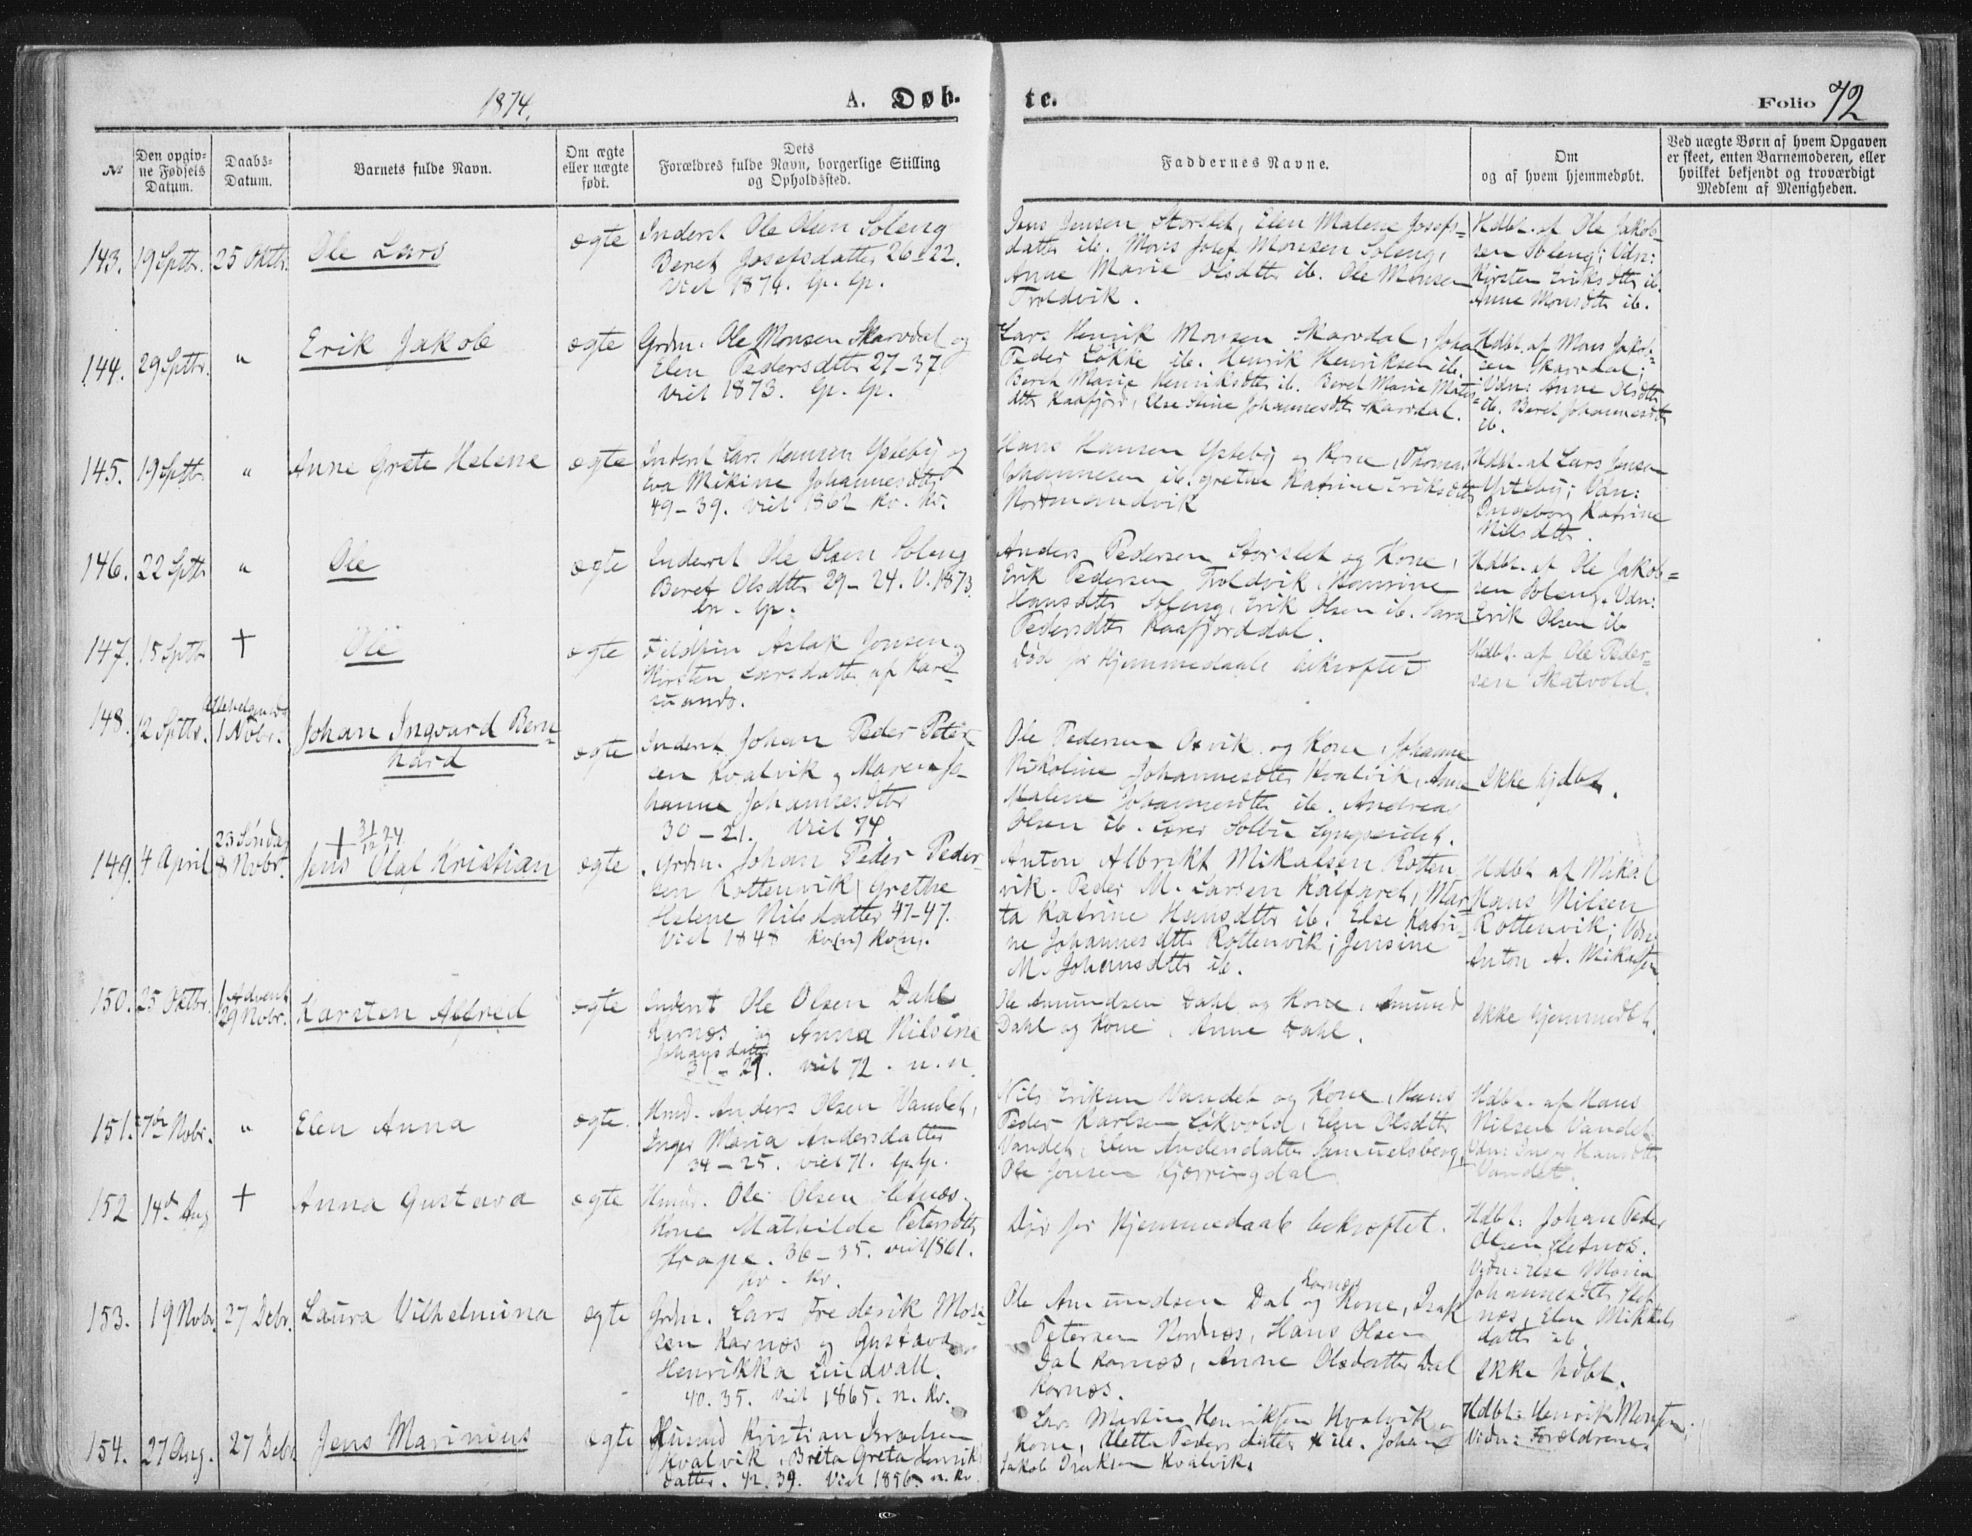 1874.
A. Døb-
te.
Folio 72
№
Den opgiv-
ne Fødsels
Datum.
Daabs-
Datum.
Barnets fulde Navn.
Om ægte
eller uægte
født.
Dets
Forældres fulde Navn, borgerlige Stilling
og Opholdssted.
Faddernes Navne.
Om
og af hvem hjemmedøbt.
Ved uægte Børn af hvem Opgaven
er skeet, enten Barnemoderen, eller
hvilket bekjendt og troværdigt
Medlem af Menigheden.
143. 19 Sptbr. 25 Oktbr. Ole Lars ægte
Inderst Ole Olsen Soleng
Beret Josefsdatter 26-22.
Viet 1874. lp. lp.
Jens Jensen Storslet, Elen Malene Josefs-
datter ib. Mons Josef Monsen Soleng,
Anne Marie Olsdtter ib. Ole Monsen
Troldvik.
Hdbt. af Ole Jakob-
sen Soleng; Vdn:
Kirsten Eriksdtter ib.
Anne Monsdtter ib.
144. 29 Sptbr. " Erik Jakob ægte
Grdm. Ole Monsen Skarvdal og
Elen Pedersdtter 27-37
viet 1873. lp. lp.
Lars Henrik Monsen Skarvdal, Johan
Peder Løkke ib. Henrik Henriksen ib.
Beret Marie Henriksdtter ib. Beret Marie
dtter Kaafjord, Else Stine Johannesdtter Skarvdal.
Hdbt. af Mons Jakob-
sen Skarvdal;
Vdn: Anne Olsdtter
ib. Beret Johannesdtter
ib.
145. 19 Sptbr. " Anne Grete Helene ægte
Inderst Lars Hansen Ysteby og
Eva Mikine Johannesdtter
49-39. viet 1862 Kv. Kv.
Hans Hansen Ysteby og Kone, Thomas
Johannesen ib. Grethe Katrine Eriksdtter
Nortmandvik
Hdbt. af Lars Jensen
Ysteby; Vdn:
Ingeborg Katrine
Nilsdtter.
146. 22 Sptbr " Ole ægte
Inderst Ole Olsen Soleng
Beret Olsdtter 29-24. V. 1873.
lp. lp.
Anders Pedersen Storslet og Kone,
Erik Pedersen Troldvik,
Hansdtter Soleng, Erik Olsen ib. Sara
Pedersdtter Kaafjorddal.
Hdbt. af Ole Jakob=
sen Soleng. Vdn:
Erik Olsen ib
147. 15 Sptbr + Ole ægte
Fieldfin Aslak Jonsen og
Kirsten Larsdatter af Kare-
suando.
Død før Hjemmedaabe bekræftet
Hdbt. af Ole Peder-
sen Skatvold.
148. 12 Sptbr. Allehelgensdag
1 Novbr. Johan Ingvard Bern-
hard ægte
Inderst Johan Peder Peter-
sen Kvalvik og Maren Jo-
hanne Johannesdtter
30-21. Viet 74.
Ole Pedersen Oxvik og Kone, Johanne
Nikoline Johannesdtter Kvalvik, Anne
Malene Johannesdtter ib. Andreas
Olsen ib. Lærer Solbu Lyngseidet.
Ikke hjdbt.
149. 4 April 23 Søndag
8 Novbr. + 31/12 74
Jens Olat Kristian ægte
Grdm. Johan Peder Peder-
sen Rottenvik, Grethe
Helene Nilsdatter 47-47.
Viet 1848 Kv(n) Kv(n).
Anton Albrikt Mikalsen Rotten-
vik. Peder M. Larsen Kalfaret, Mar-
ta Katrine Hansdtter ib. Else Katri-
ne Johannesdtter Rottenvik; Jensine
M. Johansdtter ib.
Hdbt. af Mikal
Hans Nilsen
Rottenvik; Vdn
Anton A. Mikalsen
150. 25 Oktbr. 1 Advent
29 Novbr. Karsten Alfred ægte
Inderst Ole Olsen Dahl
Karnæs og Anna Nilsine
Johansdatter
31-29. viet 72. n. n.
Ole Amundsen Dahl og Kone, Amund
Dahl og Kone, Anne Dahl.
Ikke hjemmedbt.
151. 7de Novbr. " Elen Anna ægte.
Hmd. Anders Olsen Vandet,
Inger Maria Andersdatter
34-25. viet 71. lp. lp.
Nils Eriksen Vandet og Kone, Hans
Peder Karlsen Løkvold, Elen Olsdtter
Vandet, Elen Andersdatter Samuelsberg,
Ole Jonsen Kjærringdal
Hdbt. af Hans
Nilsen Vandet
Vdn: Inger Hansdtter
Vandet.
152 14de Aug + Anna Gustava ægte
Hmd. Ole Olsen
Kone Mathilde Petersdtter
36-35. viet 1861.
Kv. Kv.
Død før Hjemmedaab bekræftet.
Hdbt: Johan Peder
Olsen
Vidn: Else Maria
Johannesdtter
næs, Elen Mikkels
datter ib.
153. 19 Novbr. 27 Debr. Laura Vilhelmina ægte
Grdm. Lars Frederik
sen Karnæs og Gustava
Henrikka Lindvall.
40. 35. viet 1865. n. Kv.
Ole Amundsen Dal Karnæs og Kone, Isak
Petersen Nordnæs, Hans Olsen
Dal Karnæs, Anne Olsdatter Dal
Karnæs.
Ikke hdbt.
154. 27 Aug. 27 Debr Jens Marinius ægte
Husmd Kristian Israelsen
Kvalvik, Brita Greta Henriks
datter. 42. 39. Viet 1856. n. Kv.
Lars Martin Henriksen Kvalvik og
Kone, Aletta Pedersdatter ib. Johan
Jakob Isaksen Kvalvik.
Hdbt: Henrik Monsen,
Vidn: Forældrene.